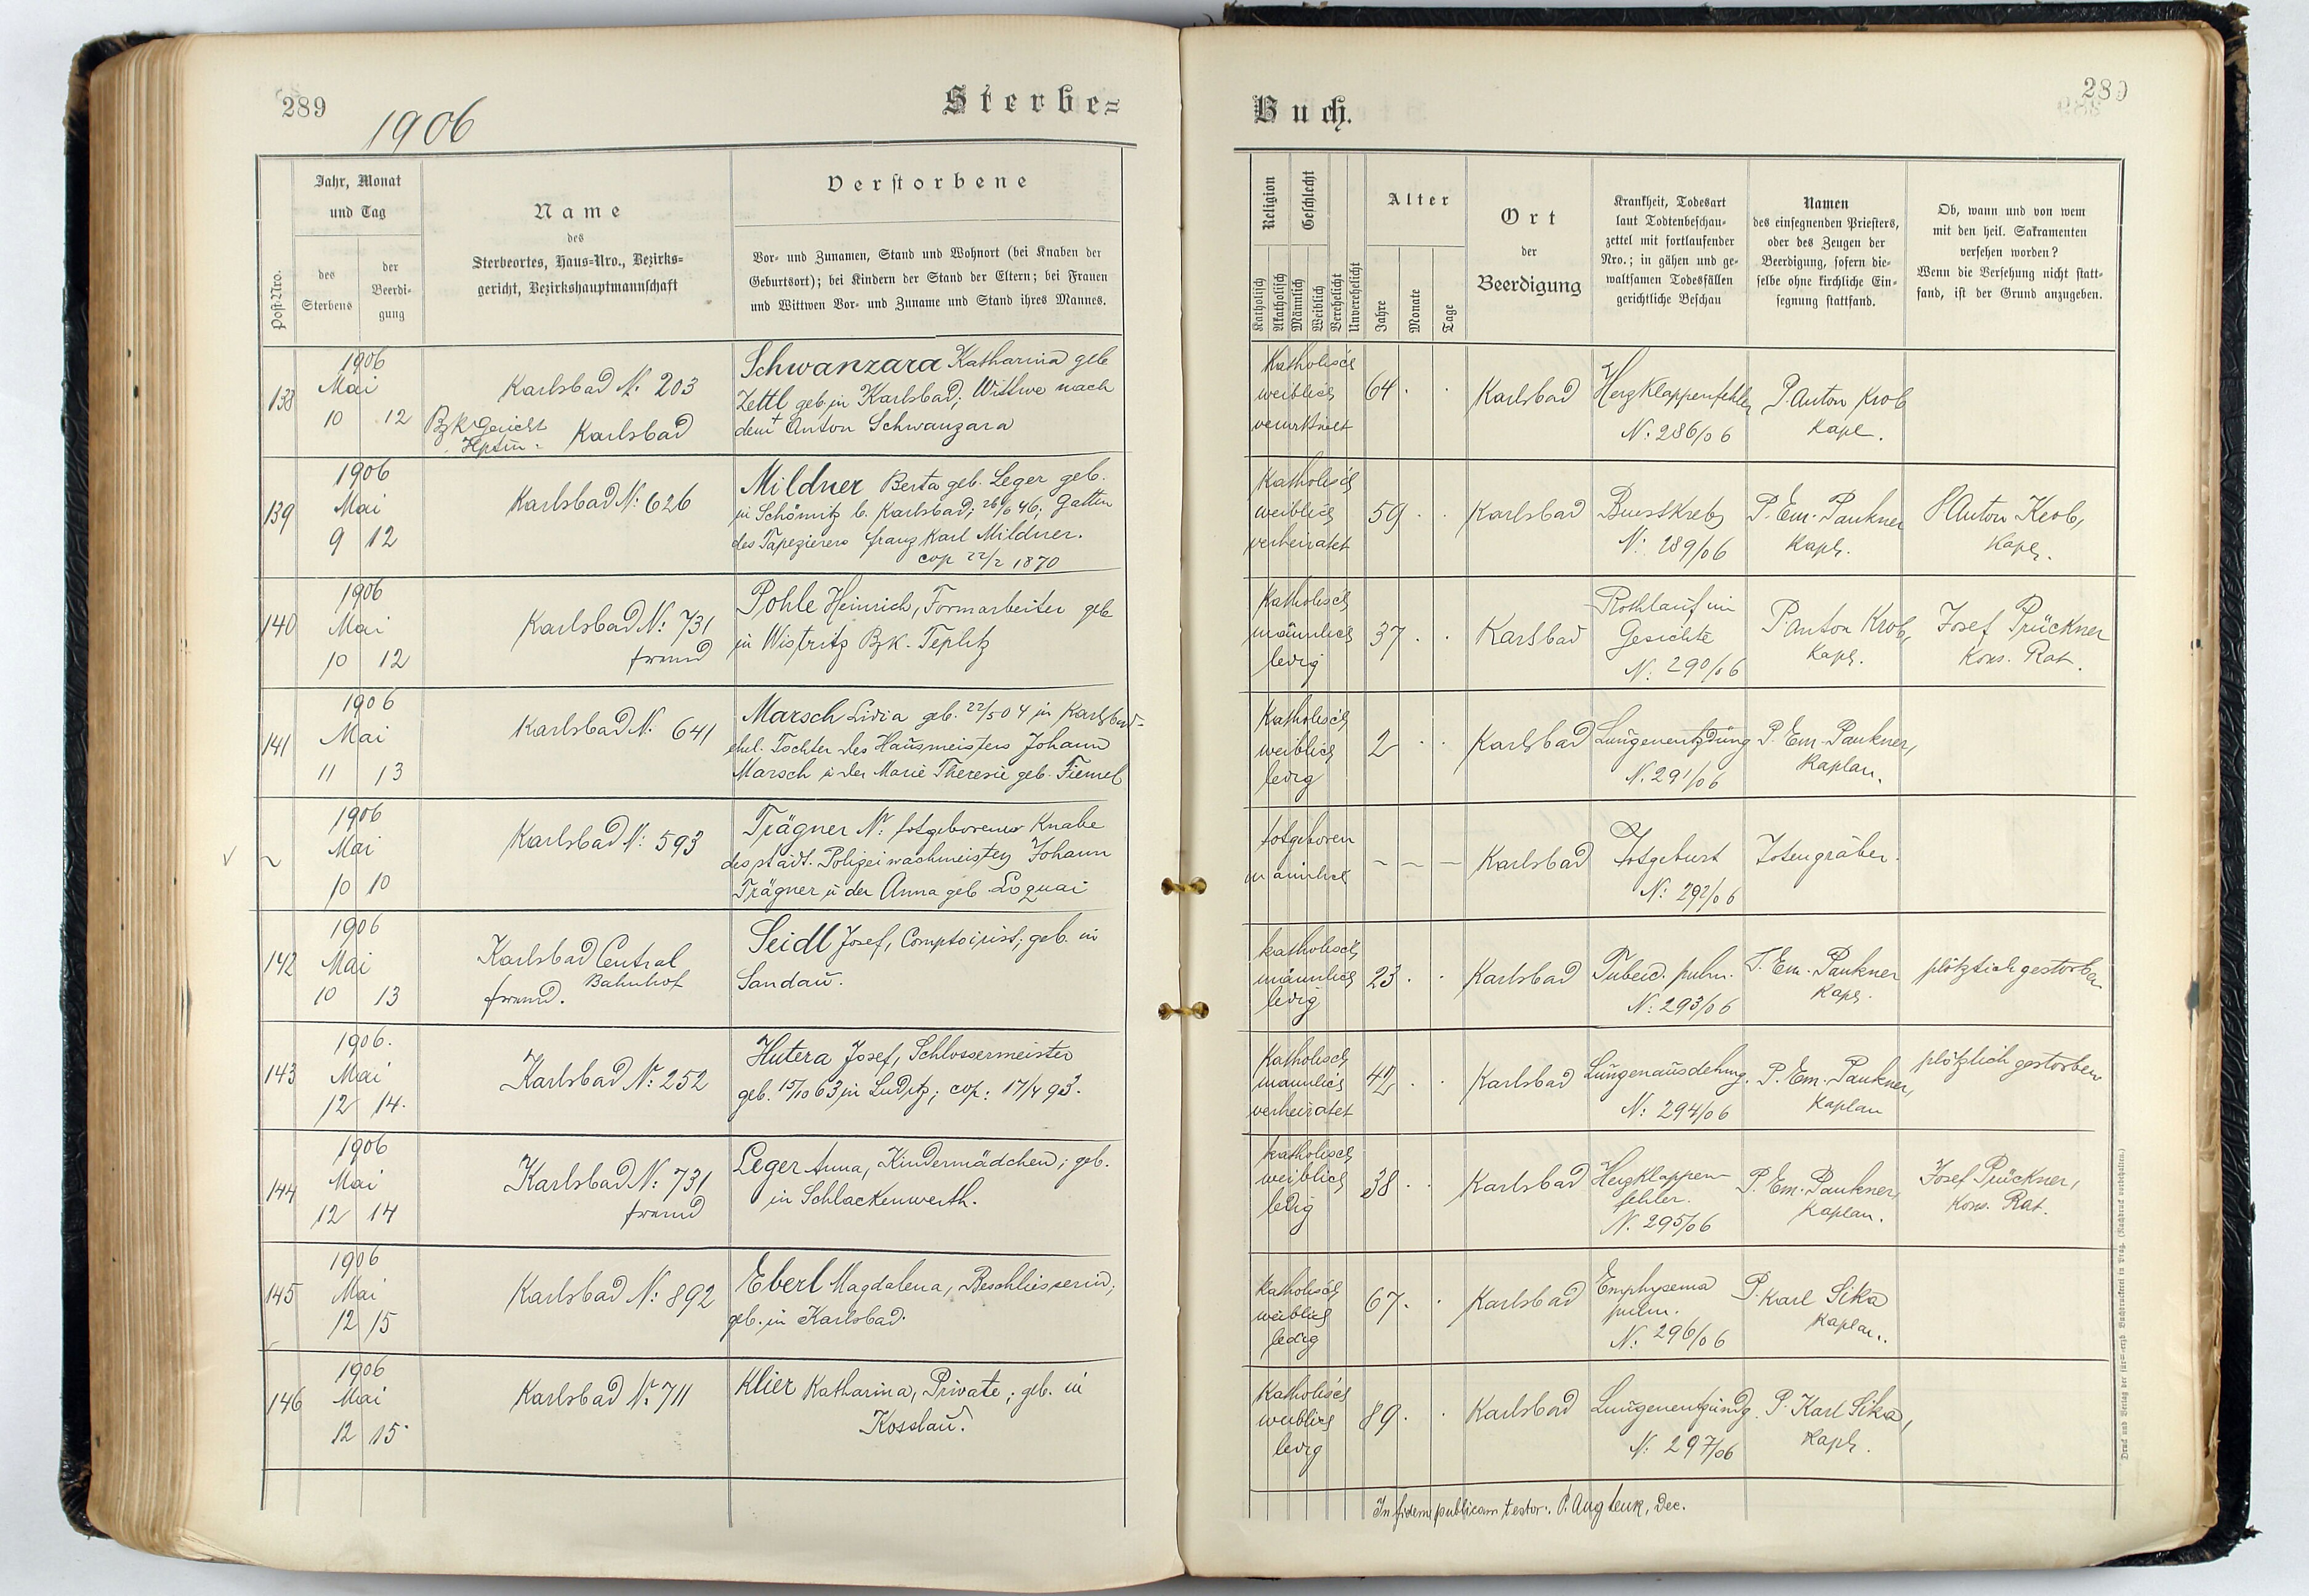 289
1906
Sterbe=
Jahr, Monat
und Tag
Post-Nro.
des
Sterbens
der
Beerdi-
gung
Name
des
Sterbeortes, Haus-Nro., Bezirks-
gericht, Bezirkshauptmannschaft
Verstorbene
Vor- und Zunamen, Stand und Wohnort (bei Knaben der
Geburtsort); bei Kindern der Stand der Eltern; bei Frauen
und Wittwen Vor- und Zuname und Stand ihres Mannes.
138
1906
Mai
10 12
Karlsbad N: 203
Bzk Gericht
Hptm. Karlsbad
Schwanzara Katharina geb
Zettl geb in Karlsbad; Wittwe nach
dem Anton Schwanzara
139
1906
Mai
9 12
Karlsbad N: 626
Mildner Berta geb. Leger geb.
in Schömitz b. Karlsbad; 26/6 46; Gattin
des Tapezierers Franz Karl Mildner.
cop 22/2 1870
140
1906
Mai
10 12
Karlsbad N: 731
fremd
Pohle Heinrich, Formarbeiter geb
in Wistritz Bzk. Teplitz
141
1906
Mai
11 13
Karlsbad N. 641
Marsch Lidia geb. 22/5 04 in Karlsbad-
ehel. Tochter des Hausmeisters Johann
Marsch u der Marie Theresie geb.
1906
Mai
10 10
Karlsbad N: 593
Trägner N: totgeborener Knabe
des städt. Polizeiwachmeisters Johann
Trägner u der Anna geb Loquai
142
1906
Mai
10 13
Karlsbad Central
Bahnhof
fremd.
Seidl Josef, Comptoirist; geb. in
Sandau.
143
1906.
Mai
12 14.
Karlsbad N: 252
Hutera Josef, Schlossermeister
geb. 15/10 63 in Luditz; cop: 17/4 93.
144
1906
Mai
12 14
Karlsbad N: 731
fremd
Leger Anna, Kindermädchen; geb.
in Schlackenwerth.
145
1906
Mai
12 15
Karlsbad N: 892
Eberl Magdalena, Beschliesserin;
geb. in Karlsbad.
146
1906
Mai
12 15
Karlsbad N: 711
Klier Katharina, Private; geb. in
Kosslau.
Buch.
289
Religion
Geschlecht
Katholisch
Akatholisch
Männlich
Weiblich
Verehelicht
Unverehelicht
Alter
Jahre
Monate
Tage
Ort
der
Beerdigung
Krankheit, Todesart
laut Todtenbeschau-
zettel mit fortlaufender
Nro.; in gähen und ge-
waltsamen Todesfällen
gerichtliche Beschau
Namen
des einsegnenden Priesters,
oder des Zeugen der
Beerdigung, sofern die-
selbe ohne kirchliche Ein-
segnung stattfand.
Ob, wann und von wem
mit den heil. Sakramenten
versehen worden?
Wenn die Versehung nicht statt-
fand, ist der Grund anzugeben.
Katholisch
weiblich
verwitwet
64
Karlsbad
Herzklappenfehler
N: 286/06
P. Anton Krob
Kapl.
Katholisch
weiblich
verheiratet
59
Karlsbad
Brustkrebs
N: 289/06
P. Em. Paukner
Kapl.
P Anton Krob,
Kapl.
Katholisch
männlich
ledig
37
Karlsbad
Rothlauf im
Gesichte
N. 290/06
P. Anton Krob,
Kapl.
Josef Prückner
Kons. Rat.
Katholisch
weiblich
ledig
2
Karlsbad
Lungenentzdung
N. 291/06
P. Em. Paukner,
Kaplan.
totgeboren
männlich
– – –
Karlsbad
Totgeburt
N: 292/06
Totengräber.
katholisch
männlich
ledig
23
Karlsbad
Tuberc. pulm.
N: 293/06
P. Em. Paukner
Kapl.
plötzlich gestorben
Katholisch
männlich
verheiratet
42
Karlsbad
Lungenausdehng.
N: 294/06
P. Em. Paukner,
Kaplan
plötzlich gestorben
katholisch
weiblich
ledig
38
Karlsbad
Herzklappen-
fehler.
N. 295/06
P. Em. Paukner,
Kaplan.
Josef Prückner,
Kons. Rat.
katholisch
weiblich
ledig
67
Karlsbad
Emphysema
pulm.
N: 296/06
P. Karl Sika
Kaplan.
Katholisch
weiblich
ledig
89
Karlsbad
Lungenentzündg.
N: 297/06
P. Karl Sika,
Kapl.
In fidem publicam testor: P. Aug Leuk, Dec.
Druck und Verlag der für=erzb Buchdruckerei in Prag. (Nachdruck vorbehalten.)